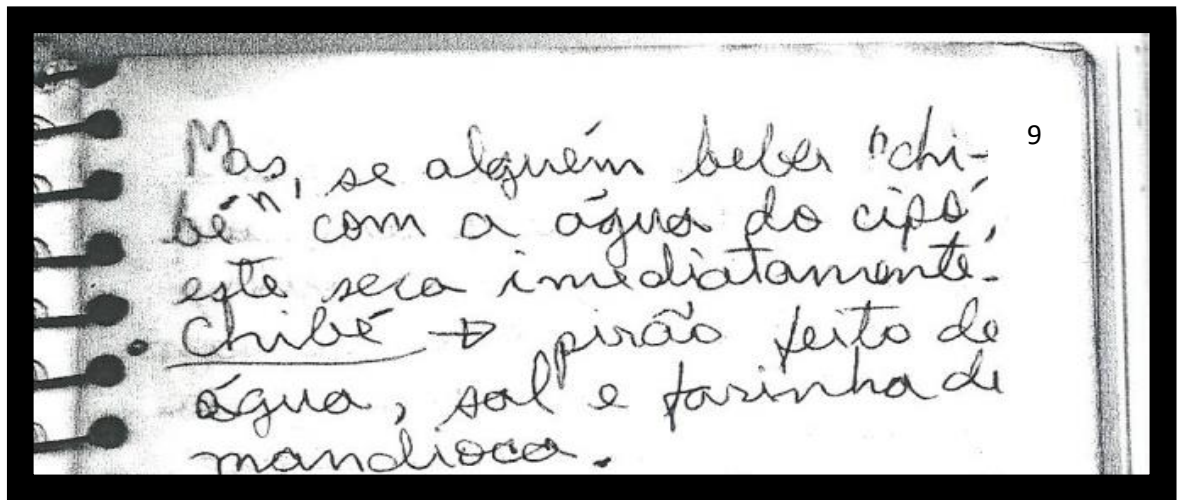 9
Mas, se alguém beber "chi-
bé", com a água do cipó,
este seca imediatamente.
• Chibé → pirão feito de
água, sal e farinha de
mandioca.